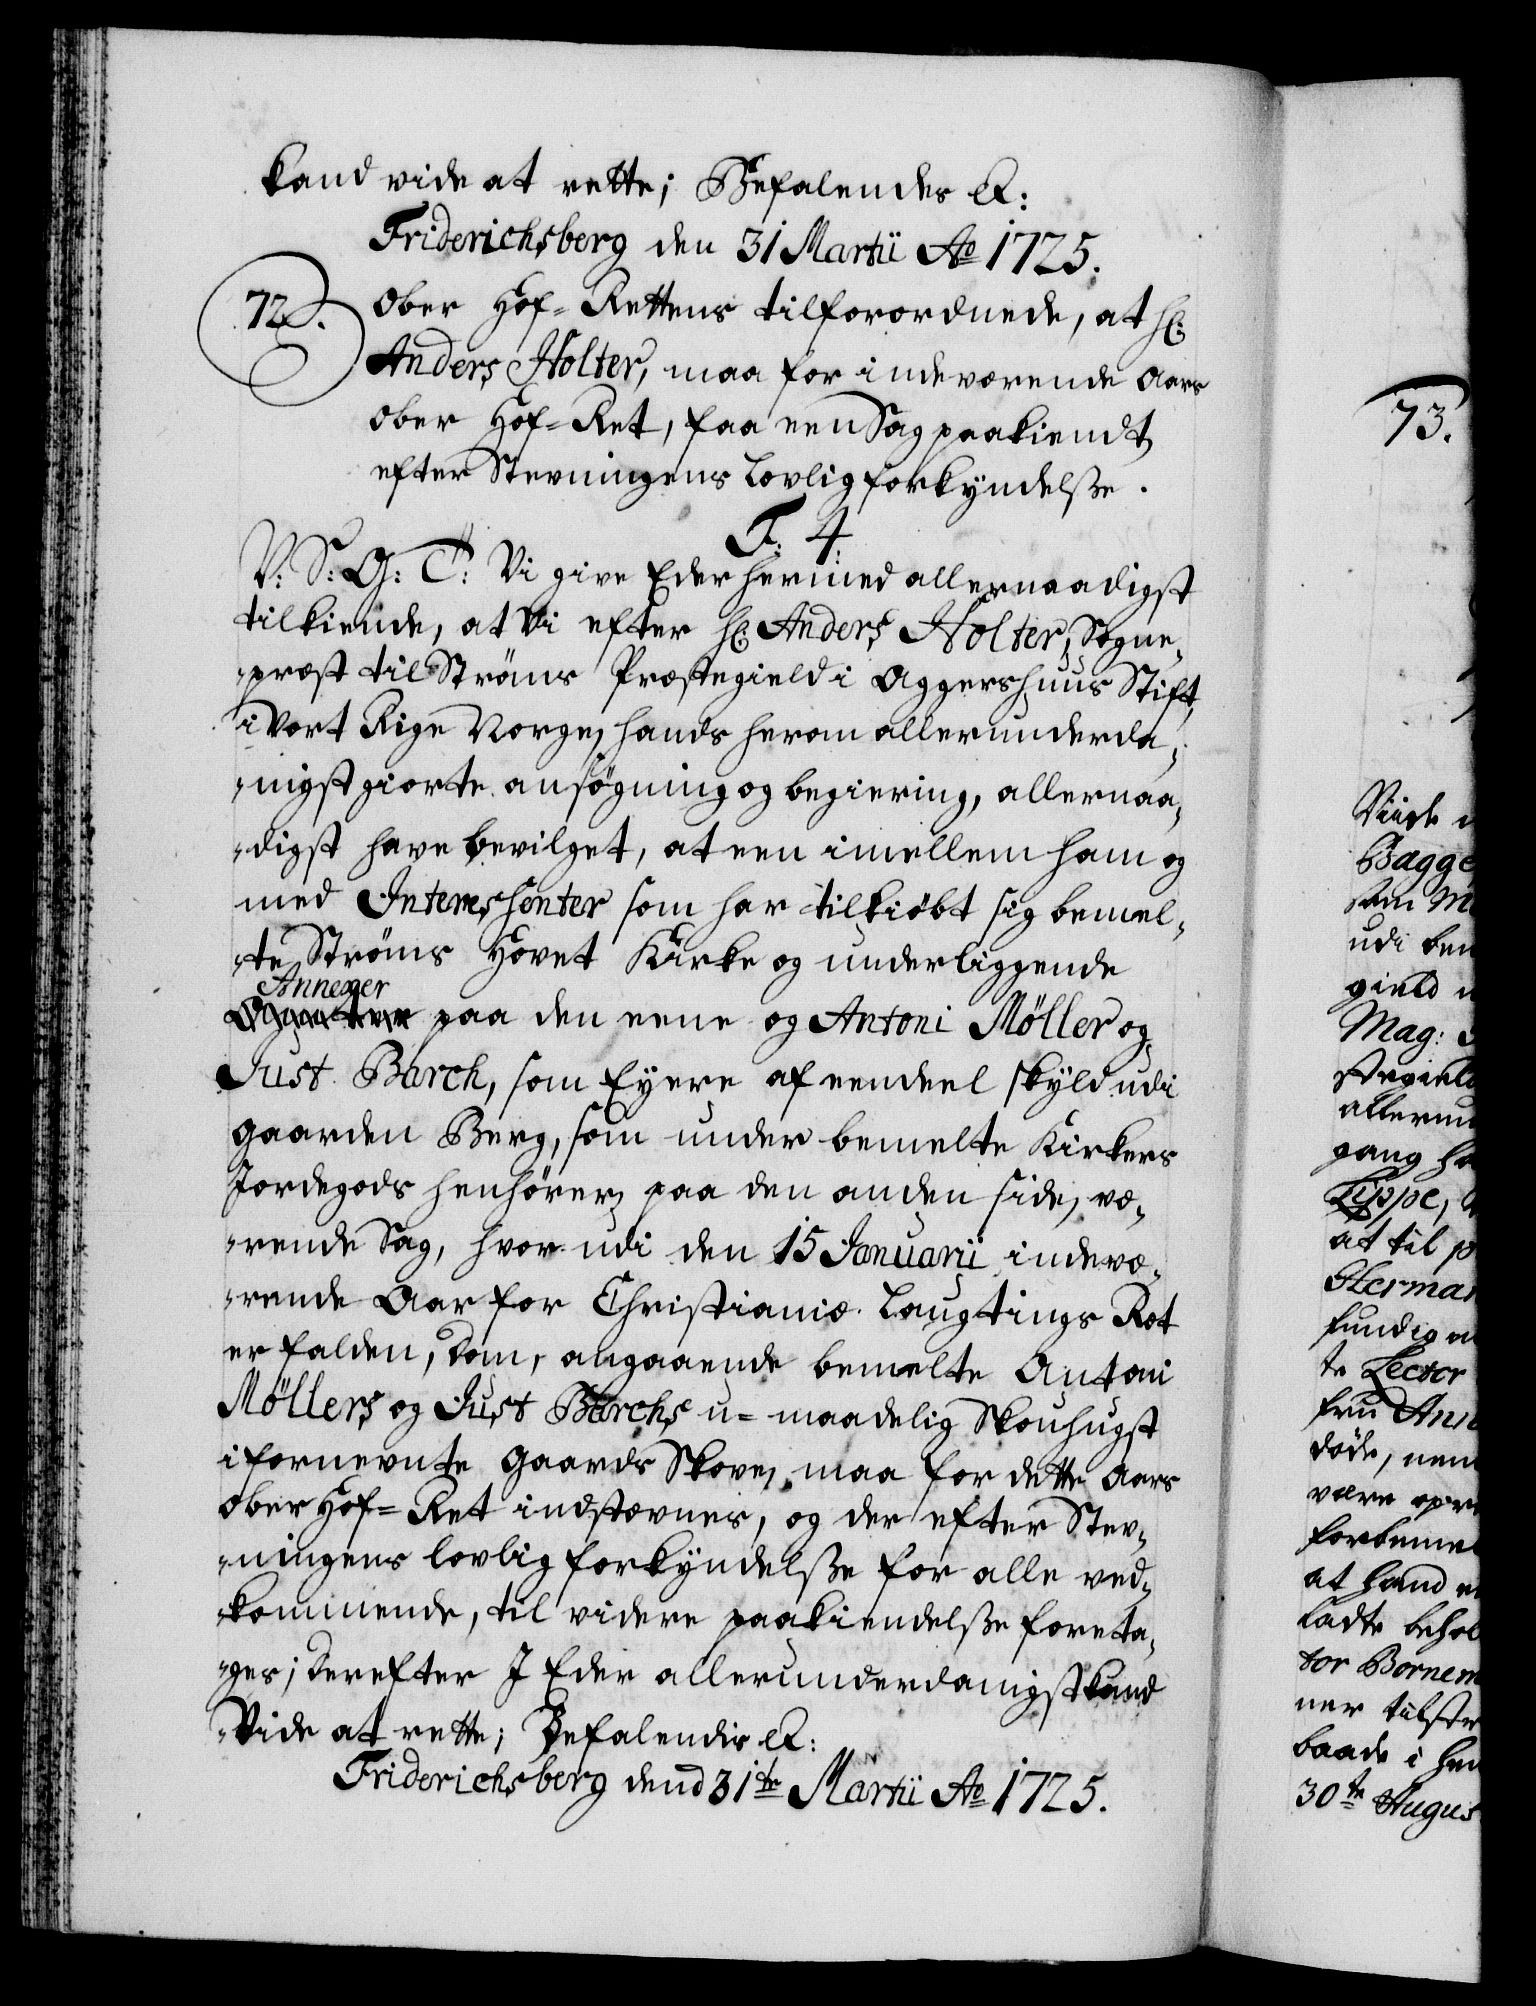 kand vide at rette; Befalendes &:
Friderichsberg den 31 Martii Ao 1725.
72. Ober Hof-Rettens tilforordnede, at Hr:
Anders Holter, maa for indeværende Aars
Ober Hof-Ret, faa een Sag paakiendt
efter Stevningens Lovlig forkyndelsse.
F. 4.
V: S: G: T: Vi give Eder hermed allernaadigst
tilkiende, at Vi efter Hr: Anders Holter, Sogne-
-præst til Strøms Præstegield i Aggershuus Stift,
i Vort Rige Norge, hands herom allerunderda-
-nigst giorte ansøgning og begiering, allernaa-
-digst have bevilget, at een imellem ham og
med Interessenter som har tilkiøbt sig bemel-
-te Strøms Hovet Kirke og underliggende
Annexer
paa den eene og Antoni Möller og
Just Barch, som Eyere af eendeel skyld udi
gaarden Berg, som under bemelte Kirkers
Jordegods henhører, paa den anden side, væ-
-rende Sag, hvor udi den 15 Januarii indevæ-
-rende Aar for Christianiæ Laugtings Ret
er falden, Dom, angaaende bemelte Antoni
Möllers og Just Barchs u-maadelig Skouhugst
i fornevnte gaards Skove, maa for dette Aars
Ober Hof-Ret indstævnes, og der efter Stev-
-ningens lovlig forkyndelsse for alle ved-
-kommende, til videre paakiendelsse foreta-
-ges; Derefter I Eder allerunderdanigst kand
Vide at rette; Befalendis &:
Friderichsberg dend 31te Martii Ao 1725.
73.
Viide
Bagge
udi ben
gield
Mag:
allerun
gang ha
Lippe,
at til p
Herman
fundig
te Lector
fru Ann
døde, nem
være opr
forbemel
at hand
ladte behol
tor Bornem
ner tilstr
baade i hen
30te Augus